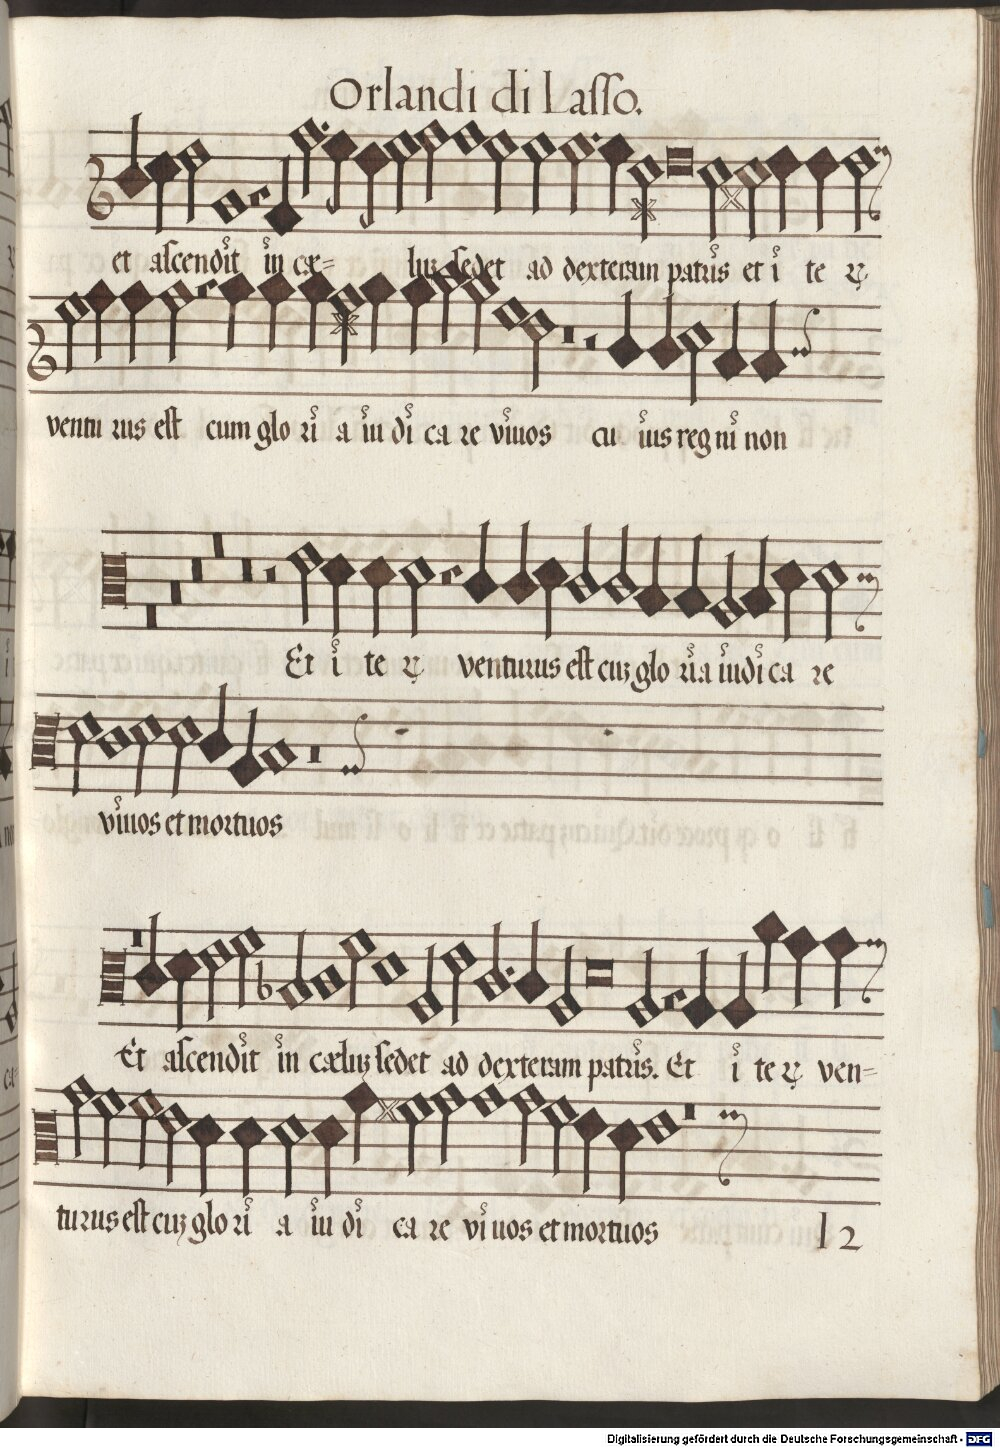 Orlandi di Lasso.
et ascendit in cæ= lũ sedet ad dexteram patris et i te rũ
ventu rus est cum glo ri a iu di ca re viuos cu ius reg ni non
Et i te rũ venturus est cũ glo ria iudi ca re
viuos et mortuos
Et ascendit in cælũ sedet ad dexteram patris. Et i te rũ ven=
turus est cũ glo ri a iu di ca re vi uos et mortuos
12
Digitalisierung gefördert durch die Deutsche Forschungsgemeinschaft - DFG